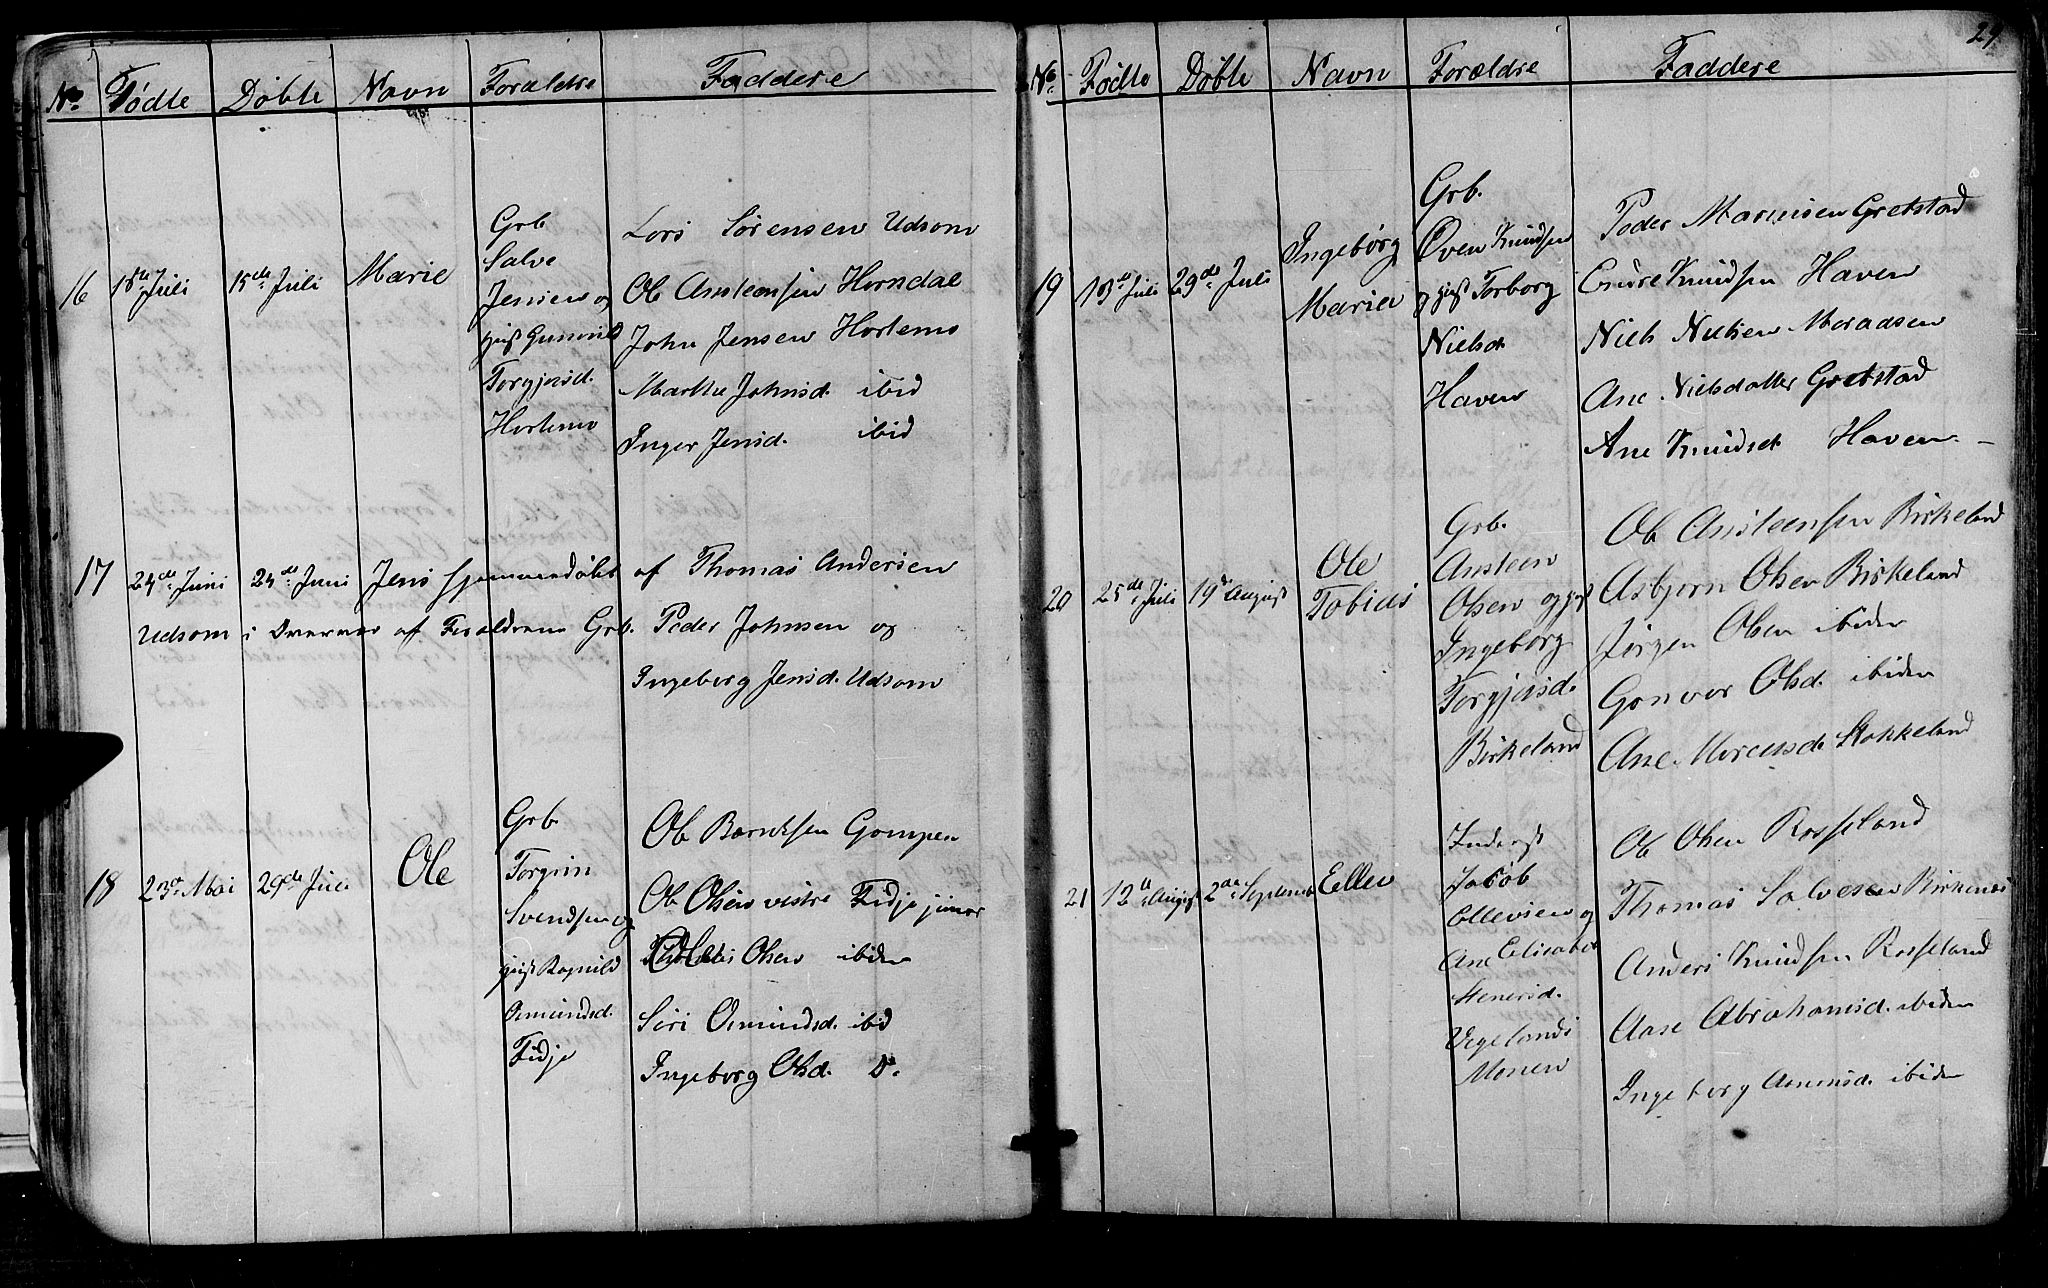 No Fødte Døbte Navn Forældre Faddere
16 1ste Juli 15de Juli Marie
Grb
Salve
Jensen og
Gunvild
Torgjusd.
Hortemo
Lars Sørensen Udsom
Ole Ansteensen Horndal
John Jensen Hortemo
Marthe Johnsd. ibid
Inger Jensd. ibid
17 24de Juni 24de Juni Jens hjemmedøbt af Thomas Andersen
Udsom i Overvær af Forældrene Grb. Peder Johnsen og
Ingeborg Jensd. Udsom
18 23de Mai 29de Juli Ole
Grb
Torgrim
Svendsen og
Ragnild
Osmundsd.
Fidje
Ole Berntsen Gompen
Ole Olsen vestre Fidje junior
Olsen ibiden
Siri Osmundsd. ibid
Ingeborg Olsd. D.
29
No Fødte Døbte Navn Forældre Faddere
19 13de Juli 29de Juli Ingebørg
Maria
Grb.
Øven Knudsen
og Torborg
Nielsd
Haven
Peder Gretstad
Knudsen Haven
Niels Nielsen
Ane Nielsdatter Gretstad
Ane Knudsd. Haven
20 25de Juli 19de August Ole
Tobias
Grb.
Ansteen
Olsen og
Ingeborg
Torgjusd.
Birkeland
Ole Ansteensen Birkeland
Asbjørn Olsen Birkeland
Jørgen Olsen ibiden
Gonvor Olsd. ibiden
Ane Stokkeland
21 12te August 2den September Ellev
Inderst
Jakob
Ellevsen og
Ane Elisabet
Stenersd.
Vegelands
Monen
Ole Olsen Rosseland
Thomas Salvesen Birkenes
Anders Knudsen Rosseland
Aase Abrahamsd. ibiden
Ingeborg ibiden